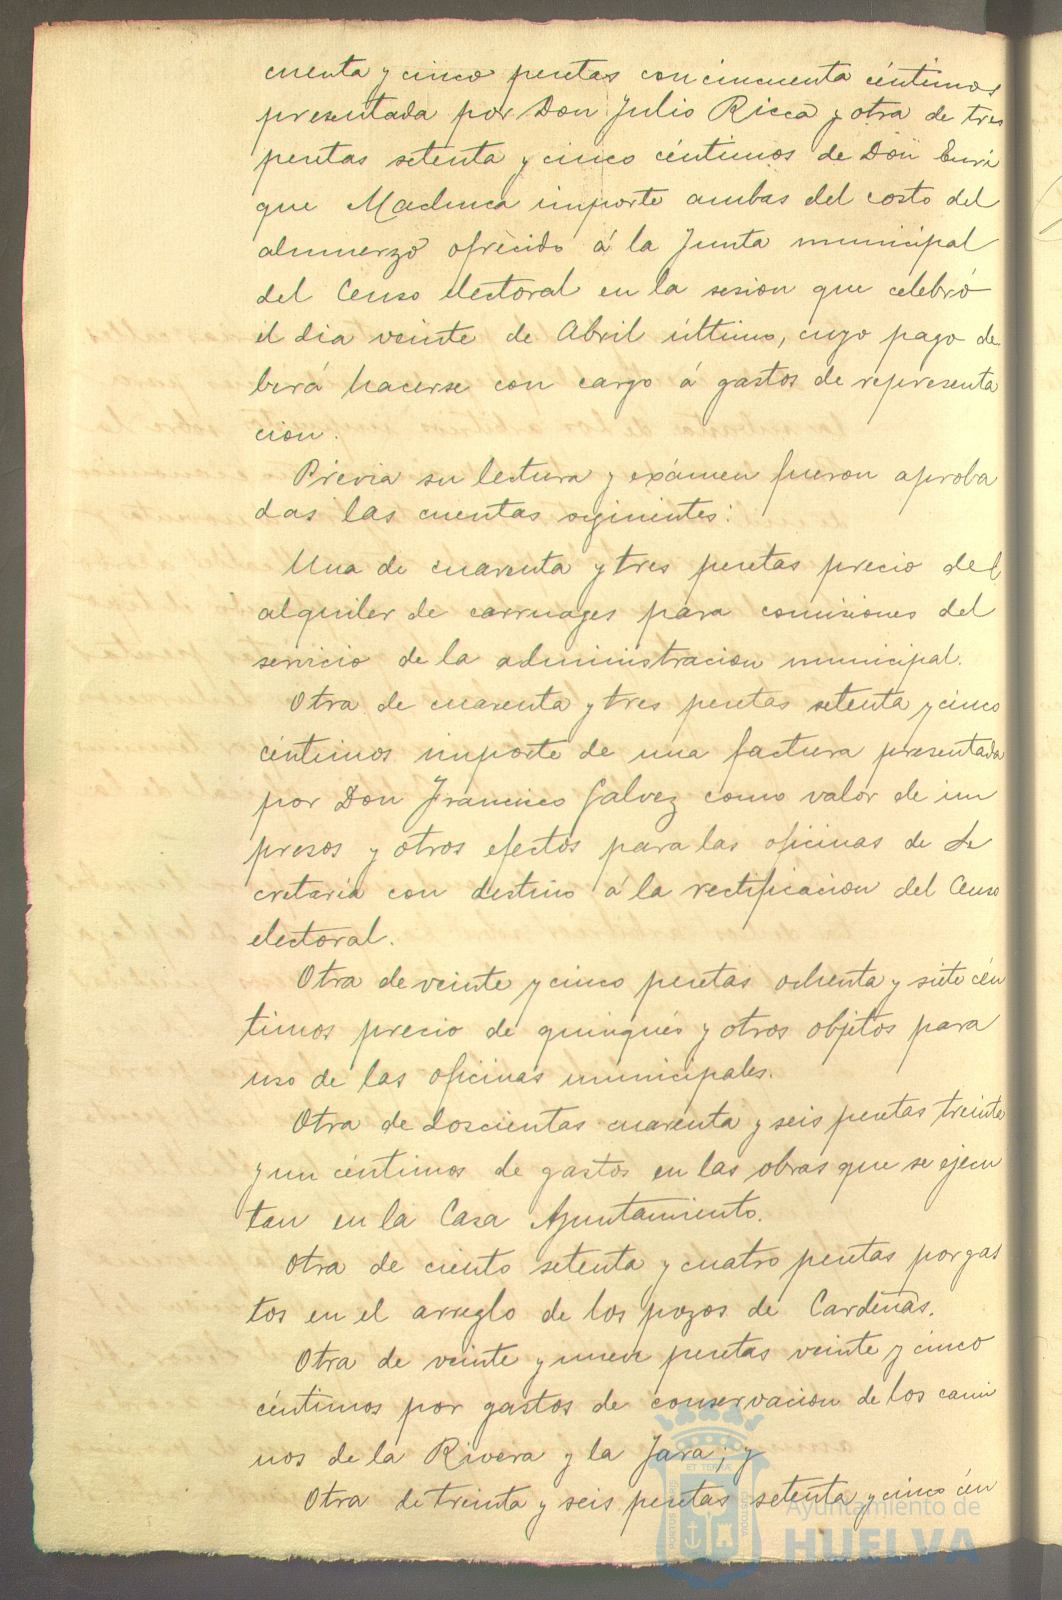 cuenta y cinco pesetas con cincuenta céntimos
presentada por Don Julio Ricca y otra de tres
pesetas setenta y cinco céntimos de Don Enri
que Machuca importe ambas del costo del
almuerzo ofrecido á la Junta municipal
del Censo electoral en la sesion que celebró
el dia veinte de Abril último, cuyo pago de
berá hacerse con cargo á gastos de representa
cion.
Prévia su lectura y exámen fueron aproba
das las cuentas siguientes:
Una de cuarenta y tres pesetas precio del
alquiler de carruages para comisiones del
servicio de la administracion municipal.
Otra de cuarenta y tres pesetas setenta y cinco
céntimos importe de una factura presentada
por Don Francisco Galvez como valor de im
presos y otros efectos para las oficinas de Se
cretaria con destino á la rectificacion del Censo
electoral.
Otra de veinte y cinco pesetas ochenta y siete cén
timos precio de quinqués y otros objetos para
uso de las oficinas municipales.
Otra de doscientas cuarenta y seis pesetas treinta
y un céntimos de gastos en las obras que se ejecu
tan en la Casa Ayuntamiento.
Otra de ciento setenta y cuatro pesetas por gas
tos en el arreglo de los pozos de Cardeñas.
Otra de veinte y nueve pesetas veinte y cinco
céntimos por gastos de conservacion de los cami
nos de la Rivera y la Jara; y
Otra de treinta y seis pesetas setenta y cinco cén
Ayuntamiento de
HUELVA